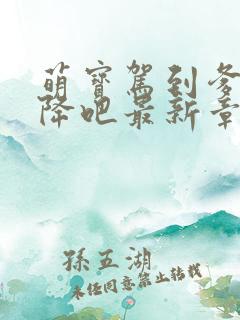 萌寶駕到爹
降吧最新章
孫五湖
未经同意禁止转载